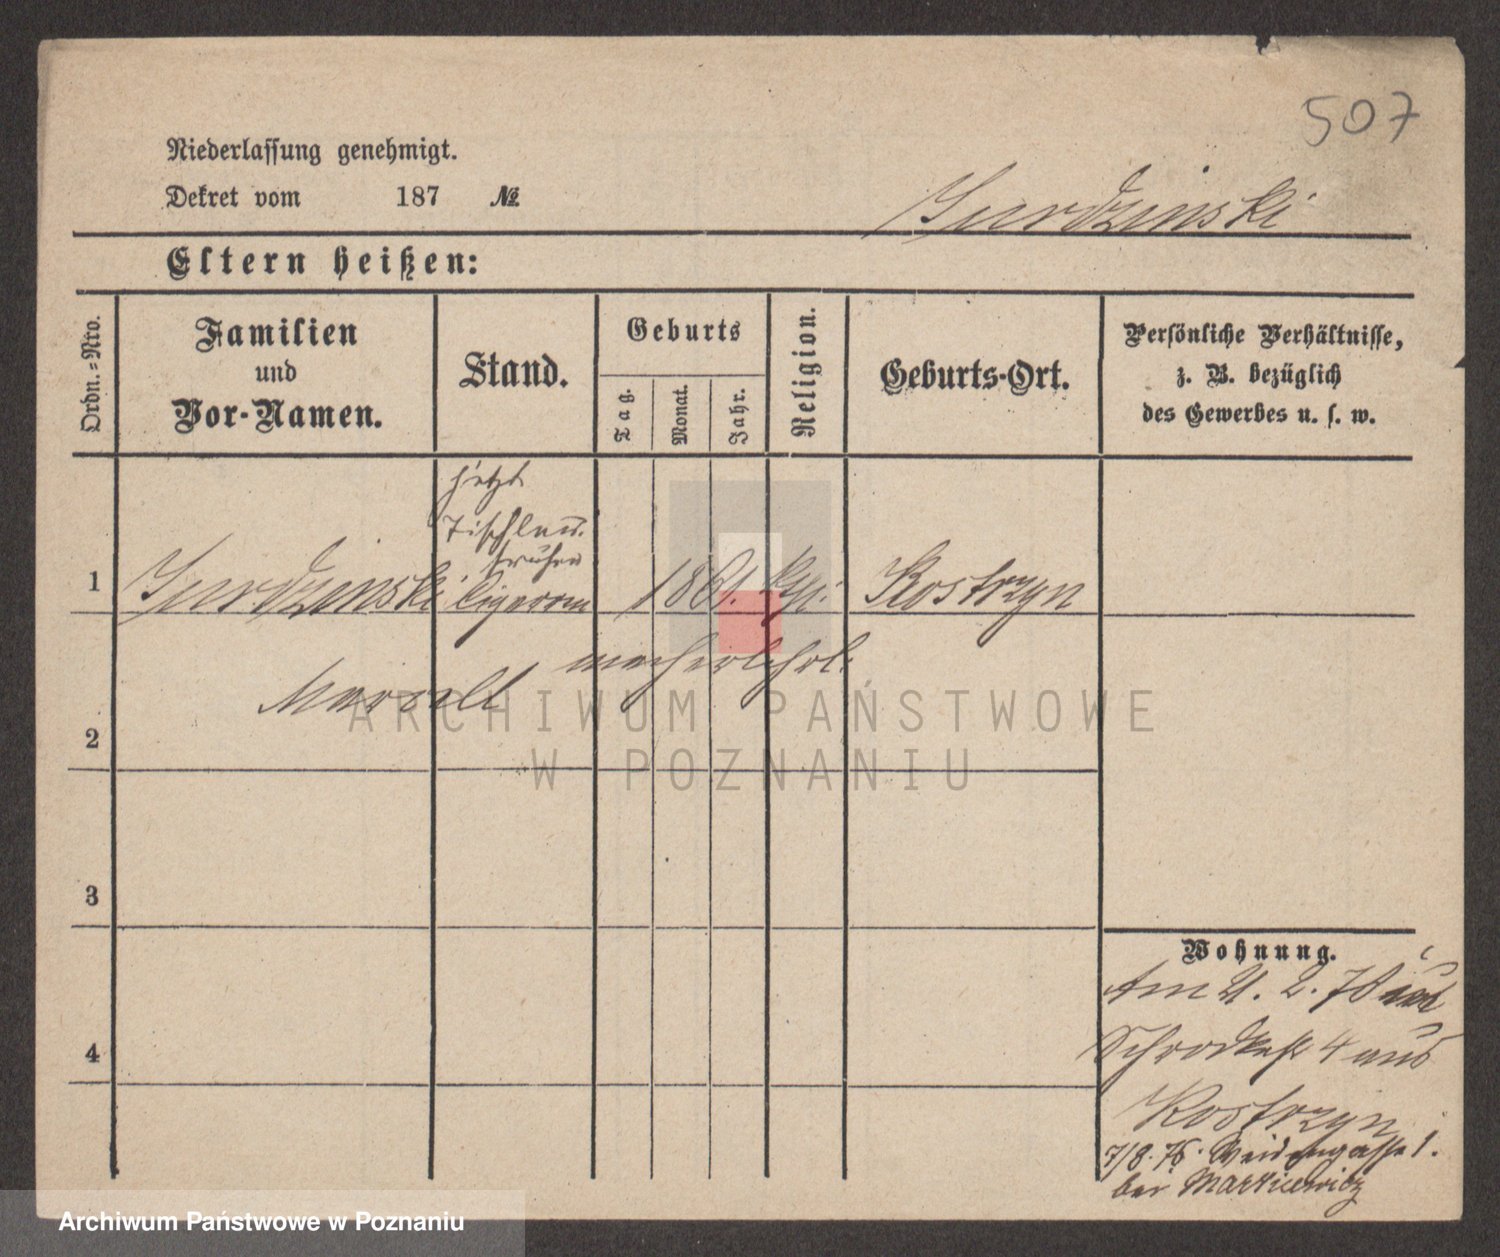 507
Niederlassung genehmigt.
Dekret vom 187 №
Gurdzinski
Eltern heißen:
Ordn.-Nro.
Familien
und
Vor-Namen.
Stand.
Geburts
Tag.
Monat.
Jahr.
Religion.
Geburts-Ort.
Persönliche Verhältnisse,
z. B. bezüglich
des Gewerbes u. s. w.
jetzt
Tischler
früher
1 Gurdzinski Cigarren 1861. kth. Kostrzyn
macherlehrl.
Marcell
ARCHIWUM PAŃSTWOWE
W POZNANIU
2
3
4
Wohnung.
Am 21. 2. 76
Schrodkastr 4 aus
Kostrzyn
7/8. 76. Weidengasse 1.
bei Markiewicz
Archiwum Państwowe w Poznaniu